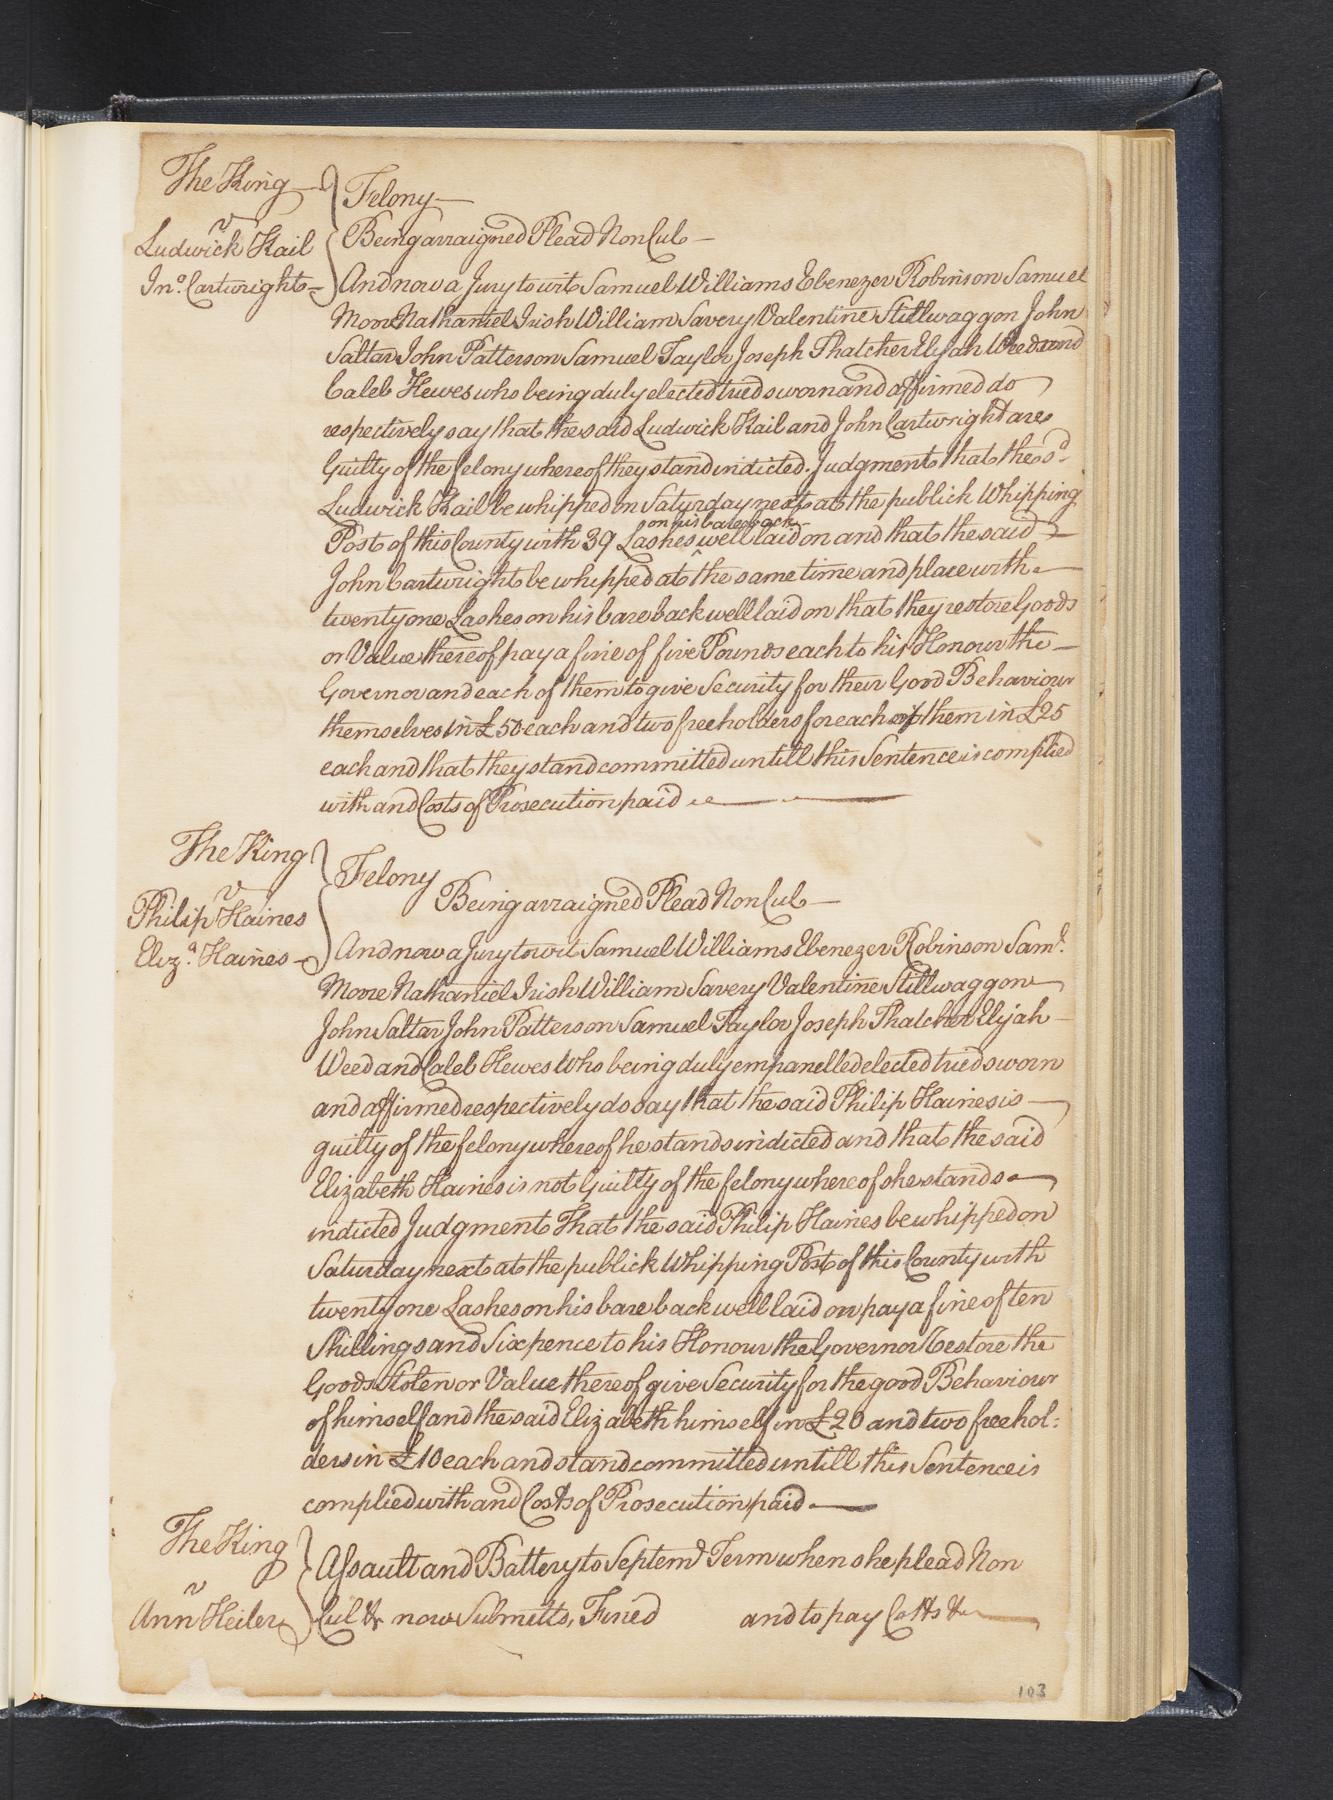 The King
v
Ludwick Kail
Jno. Cartwright
Felony
Being arraigned Plead Non Cul
And now a Jury to wit Samuel Williams Ebenezer Robinson Samuel
Moore Nathaniel Irish William Savery Valentine Stillwaggon John
Saltar John Patterson Samuel Taylor Joseph Thatcher Elijah Weed and
Caleb Hewes who being duly elected tried sworn and affirmed do
respectively say that the said Ludwick Kail and John Cartwright are
Guilty of the felony whereof they stand indicted. Judgment that the sd.
Ludwick Kail be whipped on Saturday next at the publick Whipping
on his bare back
Post of this County with 39 Lashes well laid on and that the said
John Cartwright be whipped at the same time and place with
twenty one Lashes on his bare back well laid on that they restore Goods
or Value thereof pay a fine of five Pounds each to his Honour the
Governor and each of them to give Security for their Good Behaviour
themselves in £50 each and two freeholders for each of them in £25
each and that they stand committed untill this Sentence is complied
with and Costs of Prosecution paid
The King
v
Philip Haines
Eliza. Haines
Felony
Being arraigned Plead Non Cul
And now a Jury to wit Samuel Williams Ebenezer Robinson Saml.
Moore Nathaniel Irish William Savery Valentine Stillwaggon
John Saltar John Patterson Samuel Taylor Joseph Thatcher Elijah
Weed and Caleb Hewes Who being duly empanelled elected tried sworn
and affirmed respectively do say that the said Philip Haines is
guilty of the felony whereof he stands indicted and that the said
Elizabeth Haines is not Guilty of the felony whereof she stands
indicted Judgment That the said Philip Haines be whipped on
Saturday next at the publick Whipping Post of this County with
twenty one Lashes on his bare back well laid on pay a fine of ten
Shillings and Sixpence to his Honour the Governor Restore the
Goods Stolen or Value thereof give Security for the good Behaviour
of himself and the said Elizabeth himself in £20 and two freehol:
ders in £10 each and stand committed untill this Sentence is
complied with and Costs of Prosecution paid
The King
v
Ann Heiler
Assault and Battery to Septemr Term when she plead Non
Cul &c now Submitts, Fined and to pay Costs &c
103